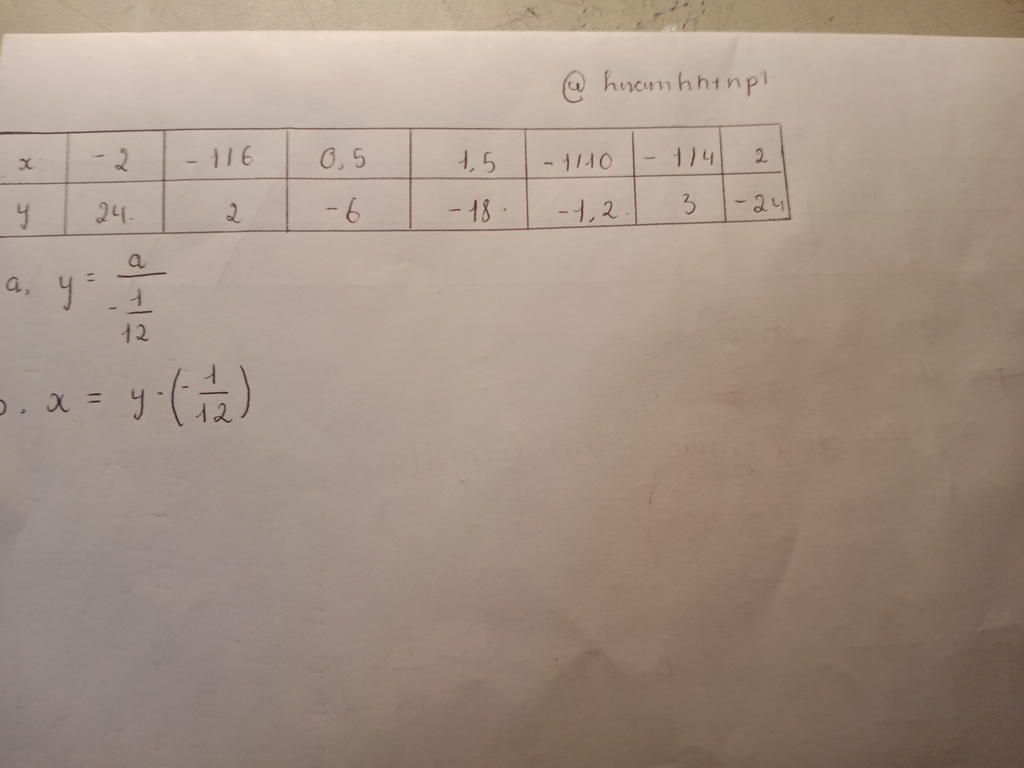 @ hnamhhtnpl
x -2 -1/6 0,5 1,5 -1/10 -1/4 2
y 24. 2 -6 -18. -1,2. 3 -24
a, y = a / (-1/12)
. x = y · (-1/12)